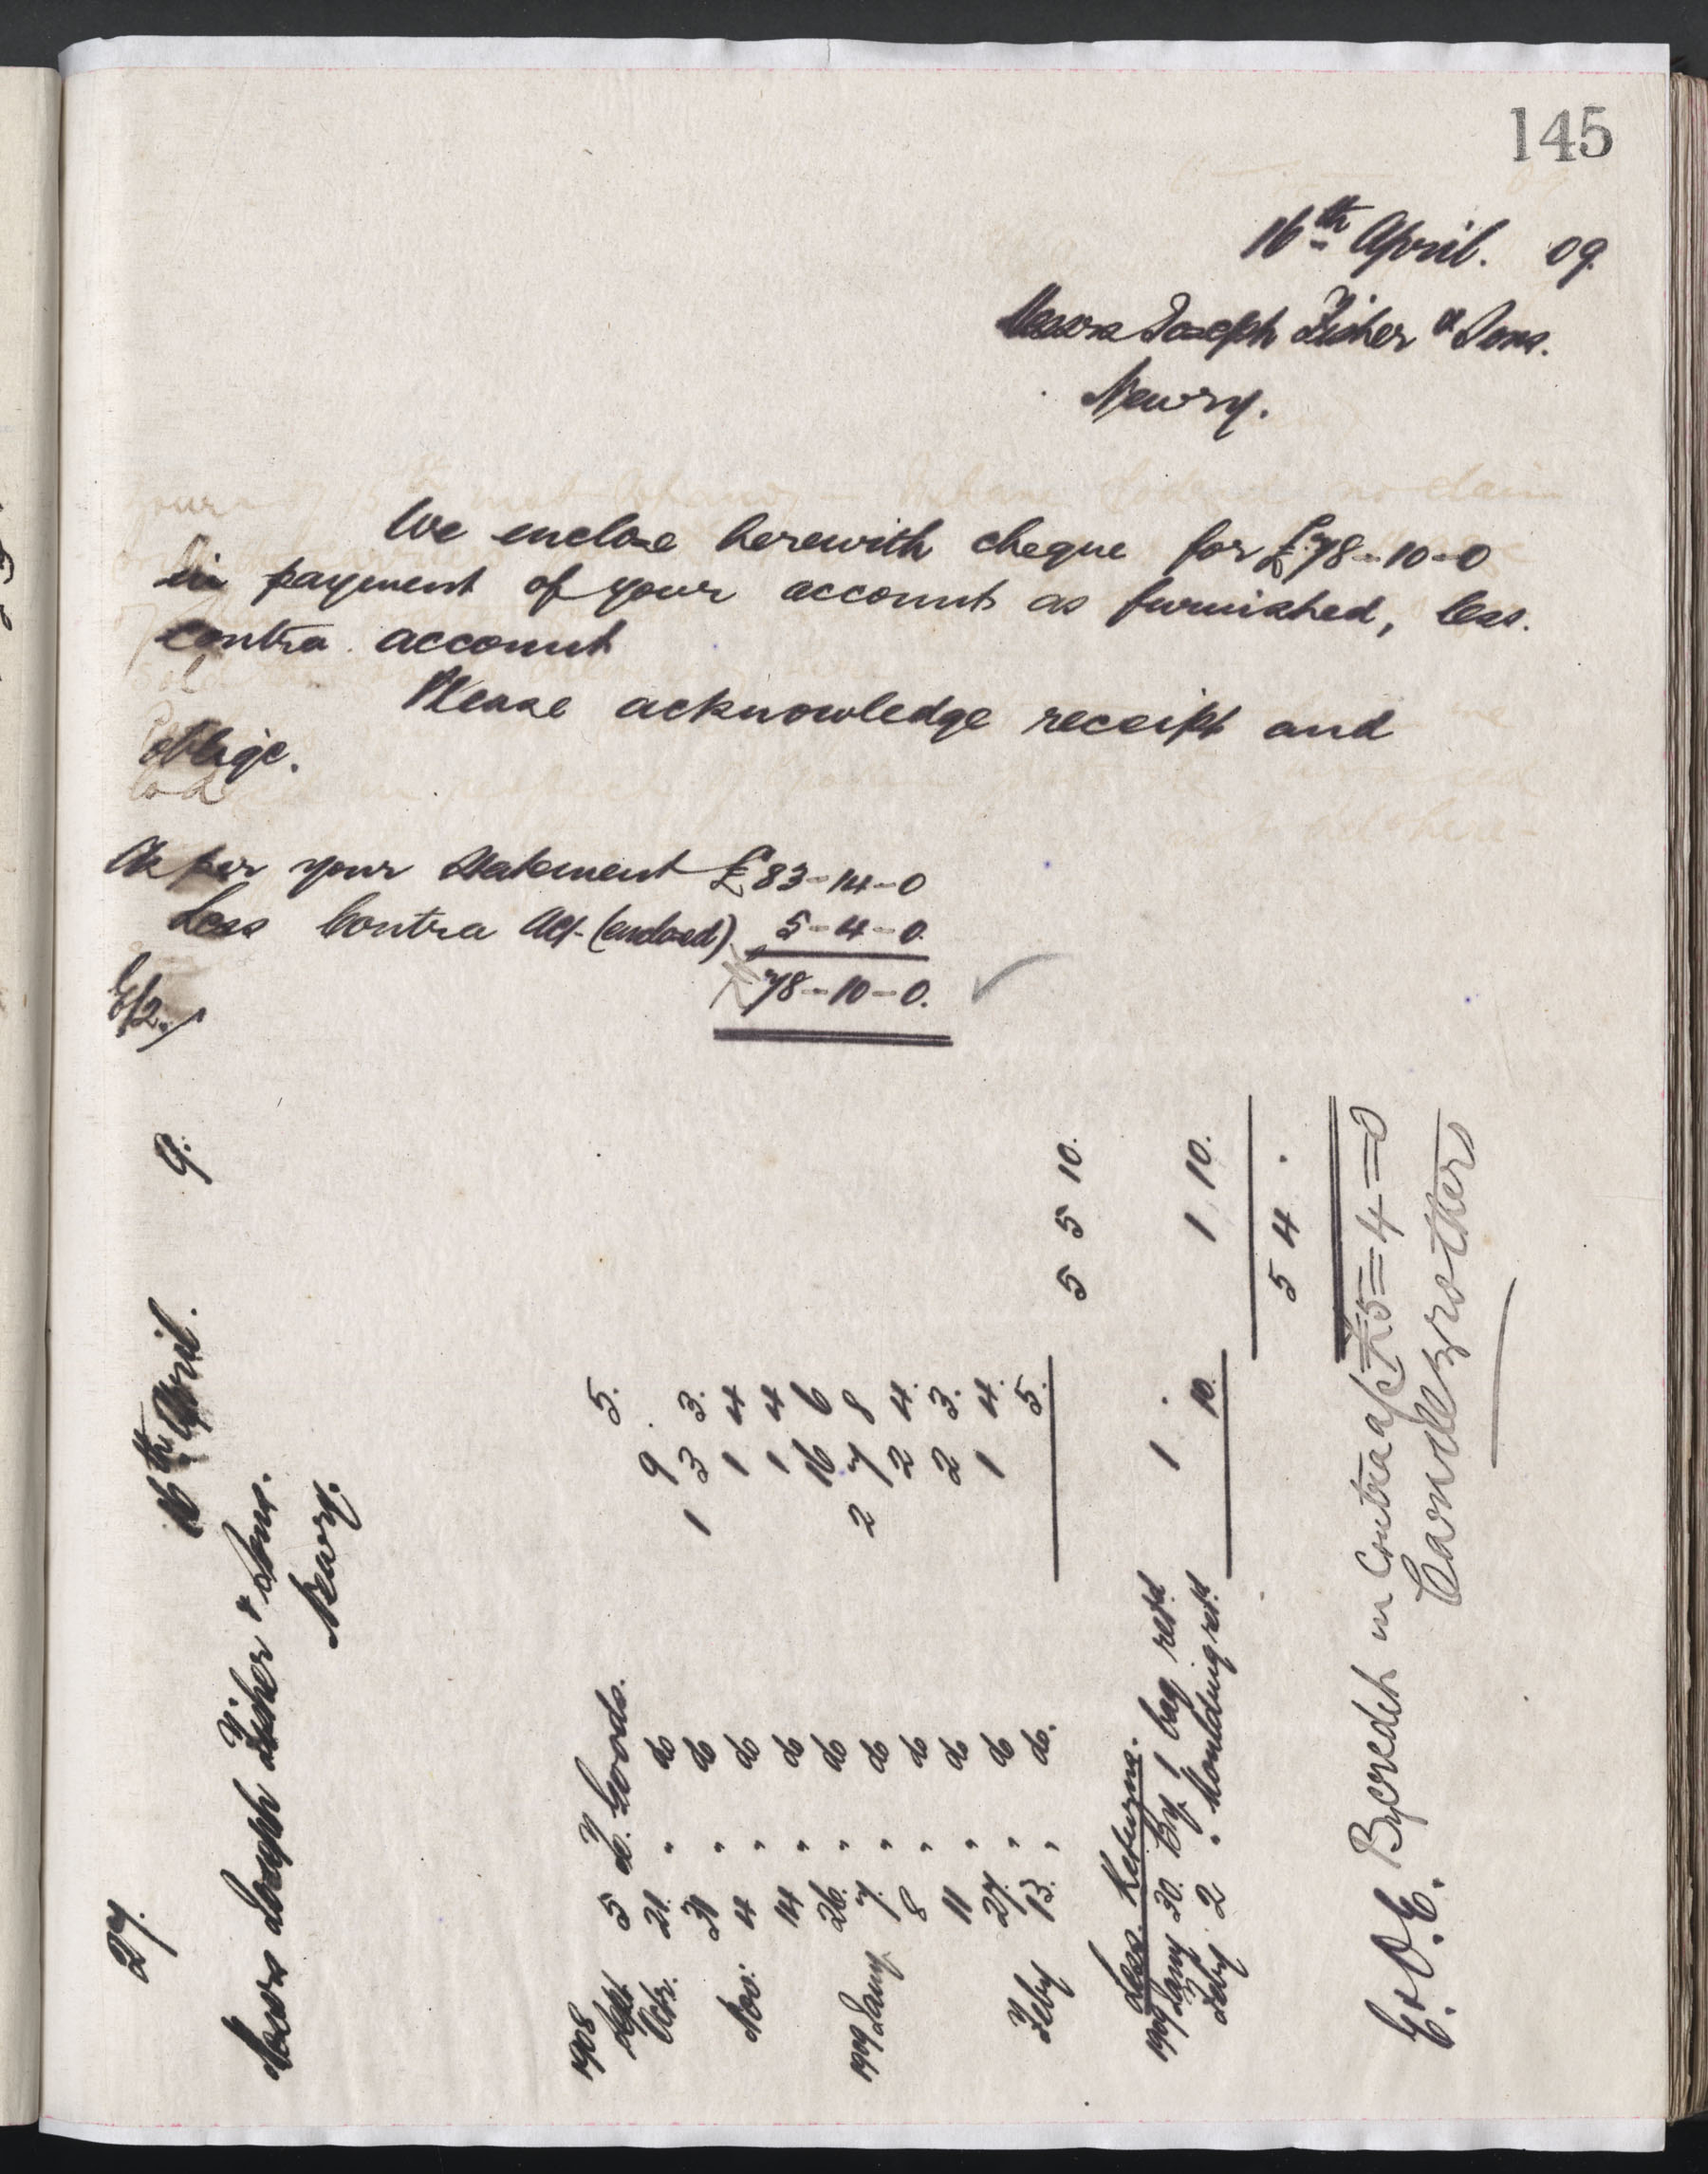 145
16th April. 09.
Messrs Joseph Fisher & Sons.
Newry.
We enclose herewith cheque for £78-10-0
in payment of your account as furnished, less
contra account
Please acknowledge receipt and
oblige.
As per your Statement £83-14-0
Less Contra a/c (enclosed) 5-4-0.
78-10-0.
27. 16th April. 9.
Messrs Joseph Fisher & Sons.
Newry.
1908
Sept 5 To Goods. 5.
Octr. 21. " do 9 .
31 " do 1 3 3.
Nov: 4 " do 1 4
14 " do 1 4
26. " do 16 6
1909 Jany 7. " do 2 7 8
8 " do 2 4.
11 " do 2 3.
27. " do 1 4.
Feby 13. " do. 5. 5 5 10.
Less Returns.
1909 Jany 30. By 1 bag retd. 1 .
Feby 2 " Moulding retd. 10. 1 10.
5 4 .
E.&O.E. By credit in Contra a/c £5=4=0
Carvill Brothers